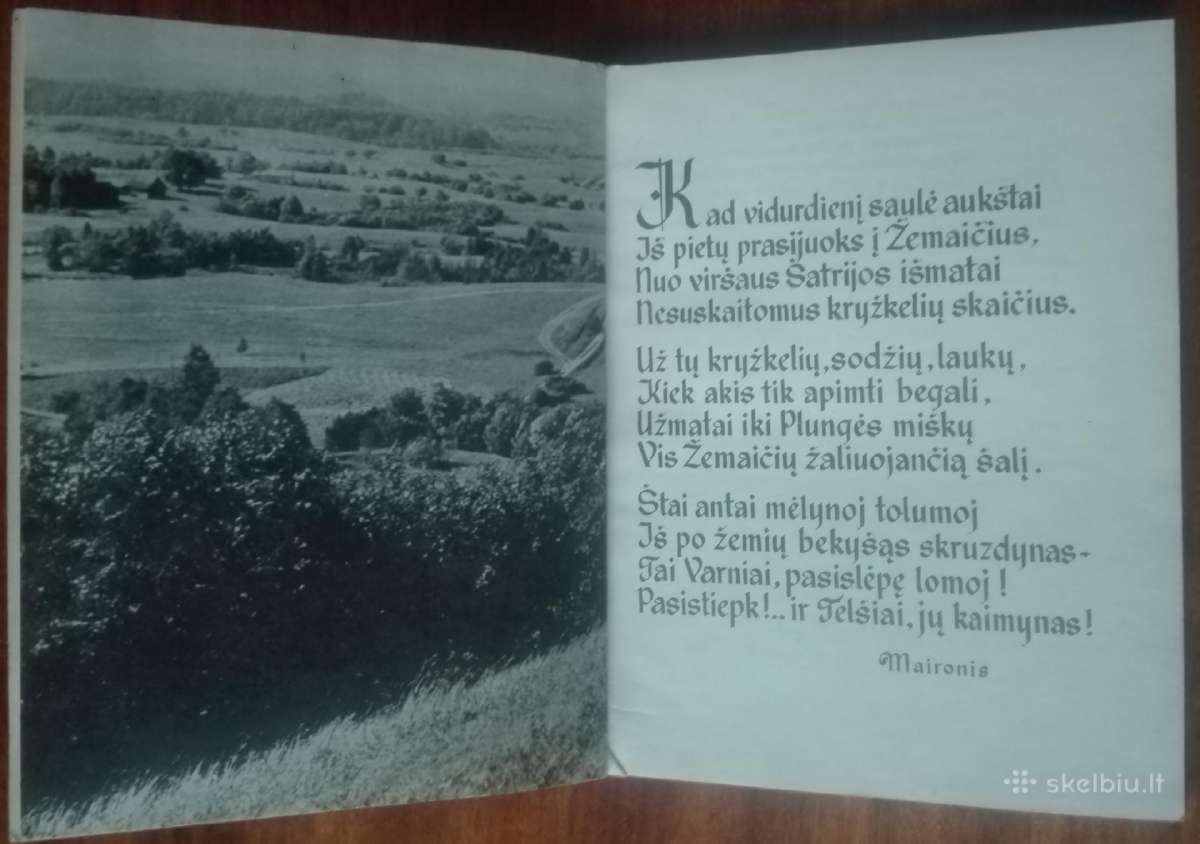 Kad vidurdienį saulė aukštai
Iš pietų prasijuoks į Žemaičius,
Nuo viršaus Šatrijos išmatai
Nesuskaitomus kryžkelių skaičius.
Už tų kryžkelių, sodžių, laukų,
Kiek akis tik apimti begali,
Užmatai iki Plungės miškų
Vis Žemaičių žaliuojančią šalį.
Štai antai mėlynoj tolumoj
Iš po žemių bekyšąs skruzdynas-
Tai Varniai, pasislėpę lomoj!
Pasistiepk!.. ir Telšiai, jų kaimynas!
Maironis
skelbiu.lt